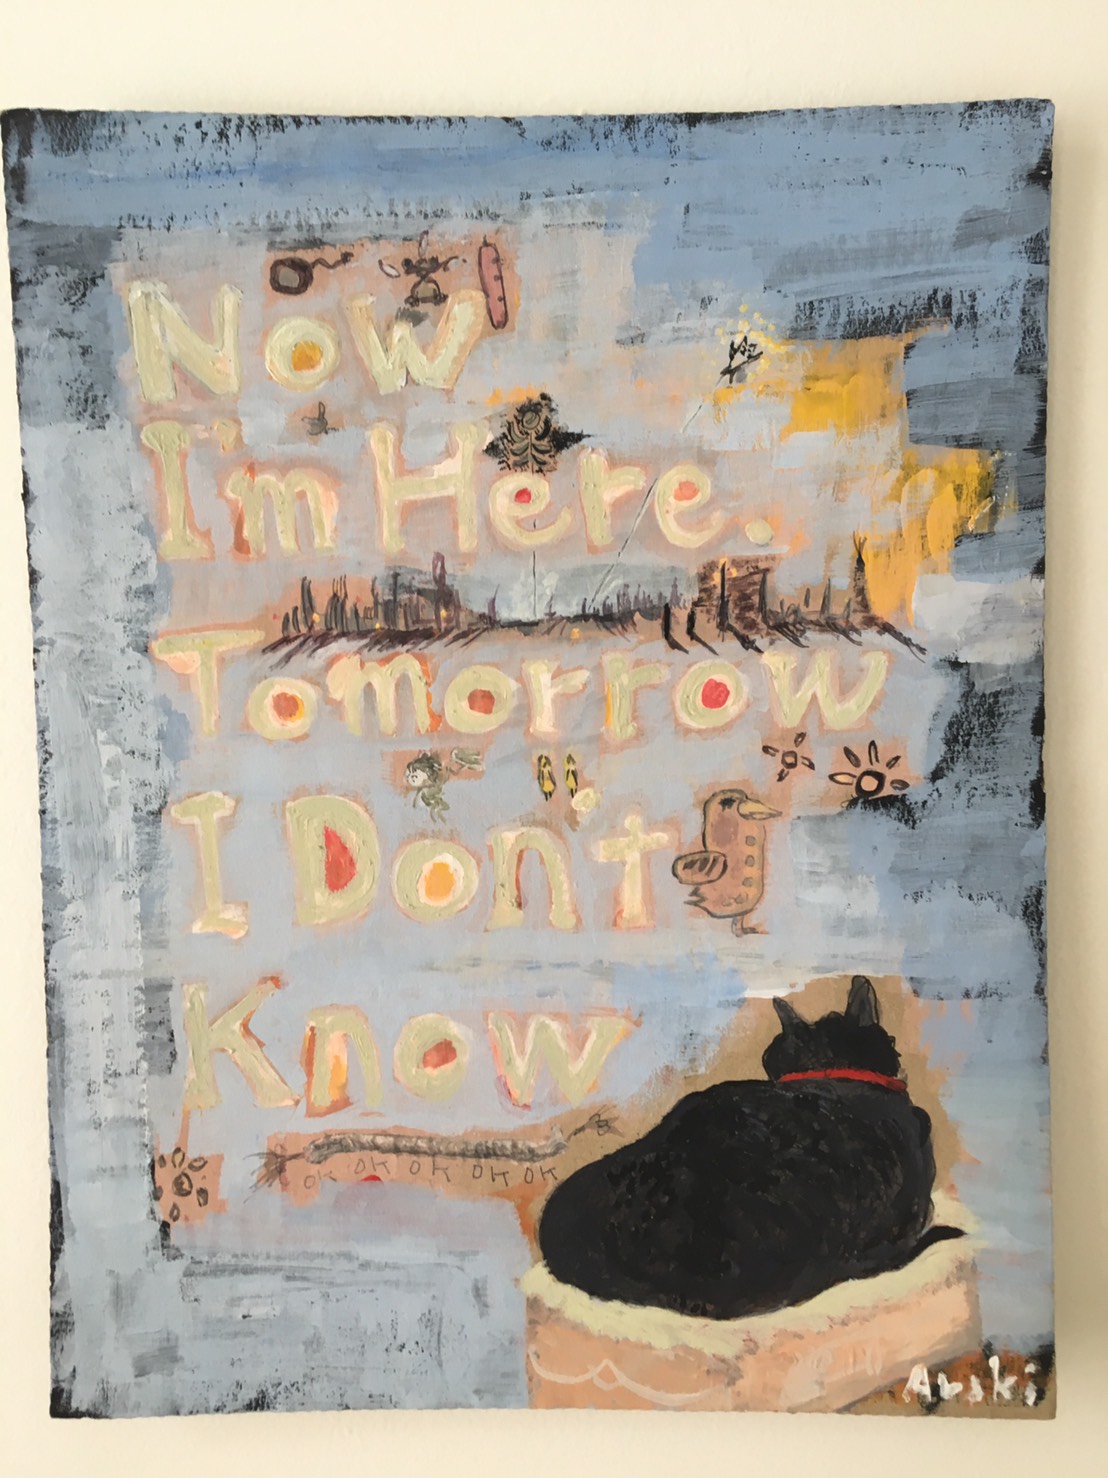 Now
I'm Here.
Tomorrow
I Don't
Know
OK OK OK OK OK